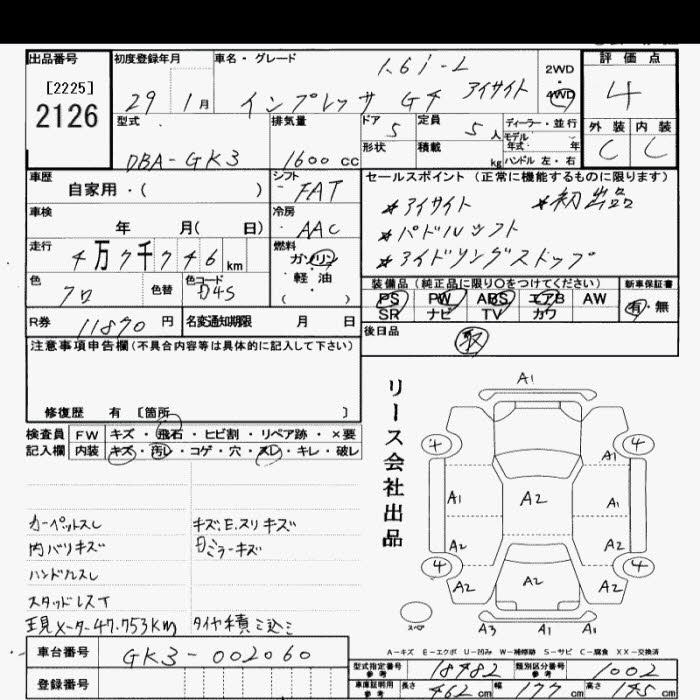 出品番号 初度登録年月 車名・グレード 評価点
[2225] 1.6i-L 2WD
2126 29 1月 インプレッサ G4 アイサイト 4WD 4
型式 排気量 ドア 定員 ディーラー・並行 外装 内装
5 5人 モデル年式 年 C C
DBA-GK3 1600cc 形状 積載 kg ハンドル 左・右
車歴 シフト セールスポイント (正常に機能するものに限ります)
自家用・( ) FAT ＊アイサイト ＊初出品
車検 冷房 ＊パドルシフト
年 月( 日) AAC ＊アイドリングストップ
走行 燃料
4万7千7 46km ガソリン
色 色替 色コード 軽油 装備品 (純正品に限り○をつけてください) 新車保証書
クロ D4S ( ) PS PW ABS エアB AW 有・無
R券 11870円 名変通知期限 月 日 SR ナビ TV カワ
注意事項申告欄(不具合内容等は具体的に記入して下さい) 後日品
取
修復歴 有 [箇所 ]
検査員 FW キズ・飛石・ヒビ割・リペア跡・×要
記入欄 内装 キズ・汚レ・コゲ・穴・スレ・キレ・破レ
リース会社出品
A1
4 4
A1
A1 A2 A1
A2 A2
4 4
A2 A2 A2
スペア A3 A1 A1
カーペットスレ キズ、E、スリキズ
内バリキズ 日ミラーキズ
ハンドルスレ
スタッドレスT
現メーター47.753km タイヤ積ミ込ミ
A-キズ E-エクボ U-凹み W-補修跡 S-サビ C-腐食 XX-交換済
車台番号 GK3-002060
登録番号
型式指定番号 参考 18482 類別区分番号 参考 1002
車庫証明用 参考 長さ 462cm 幅 177cm 高さ 145cm